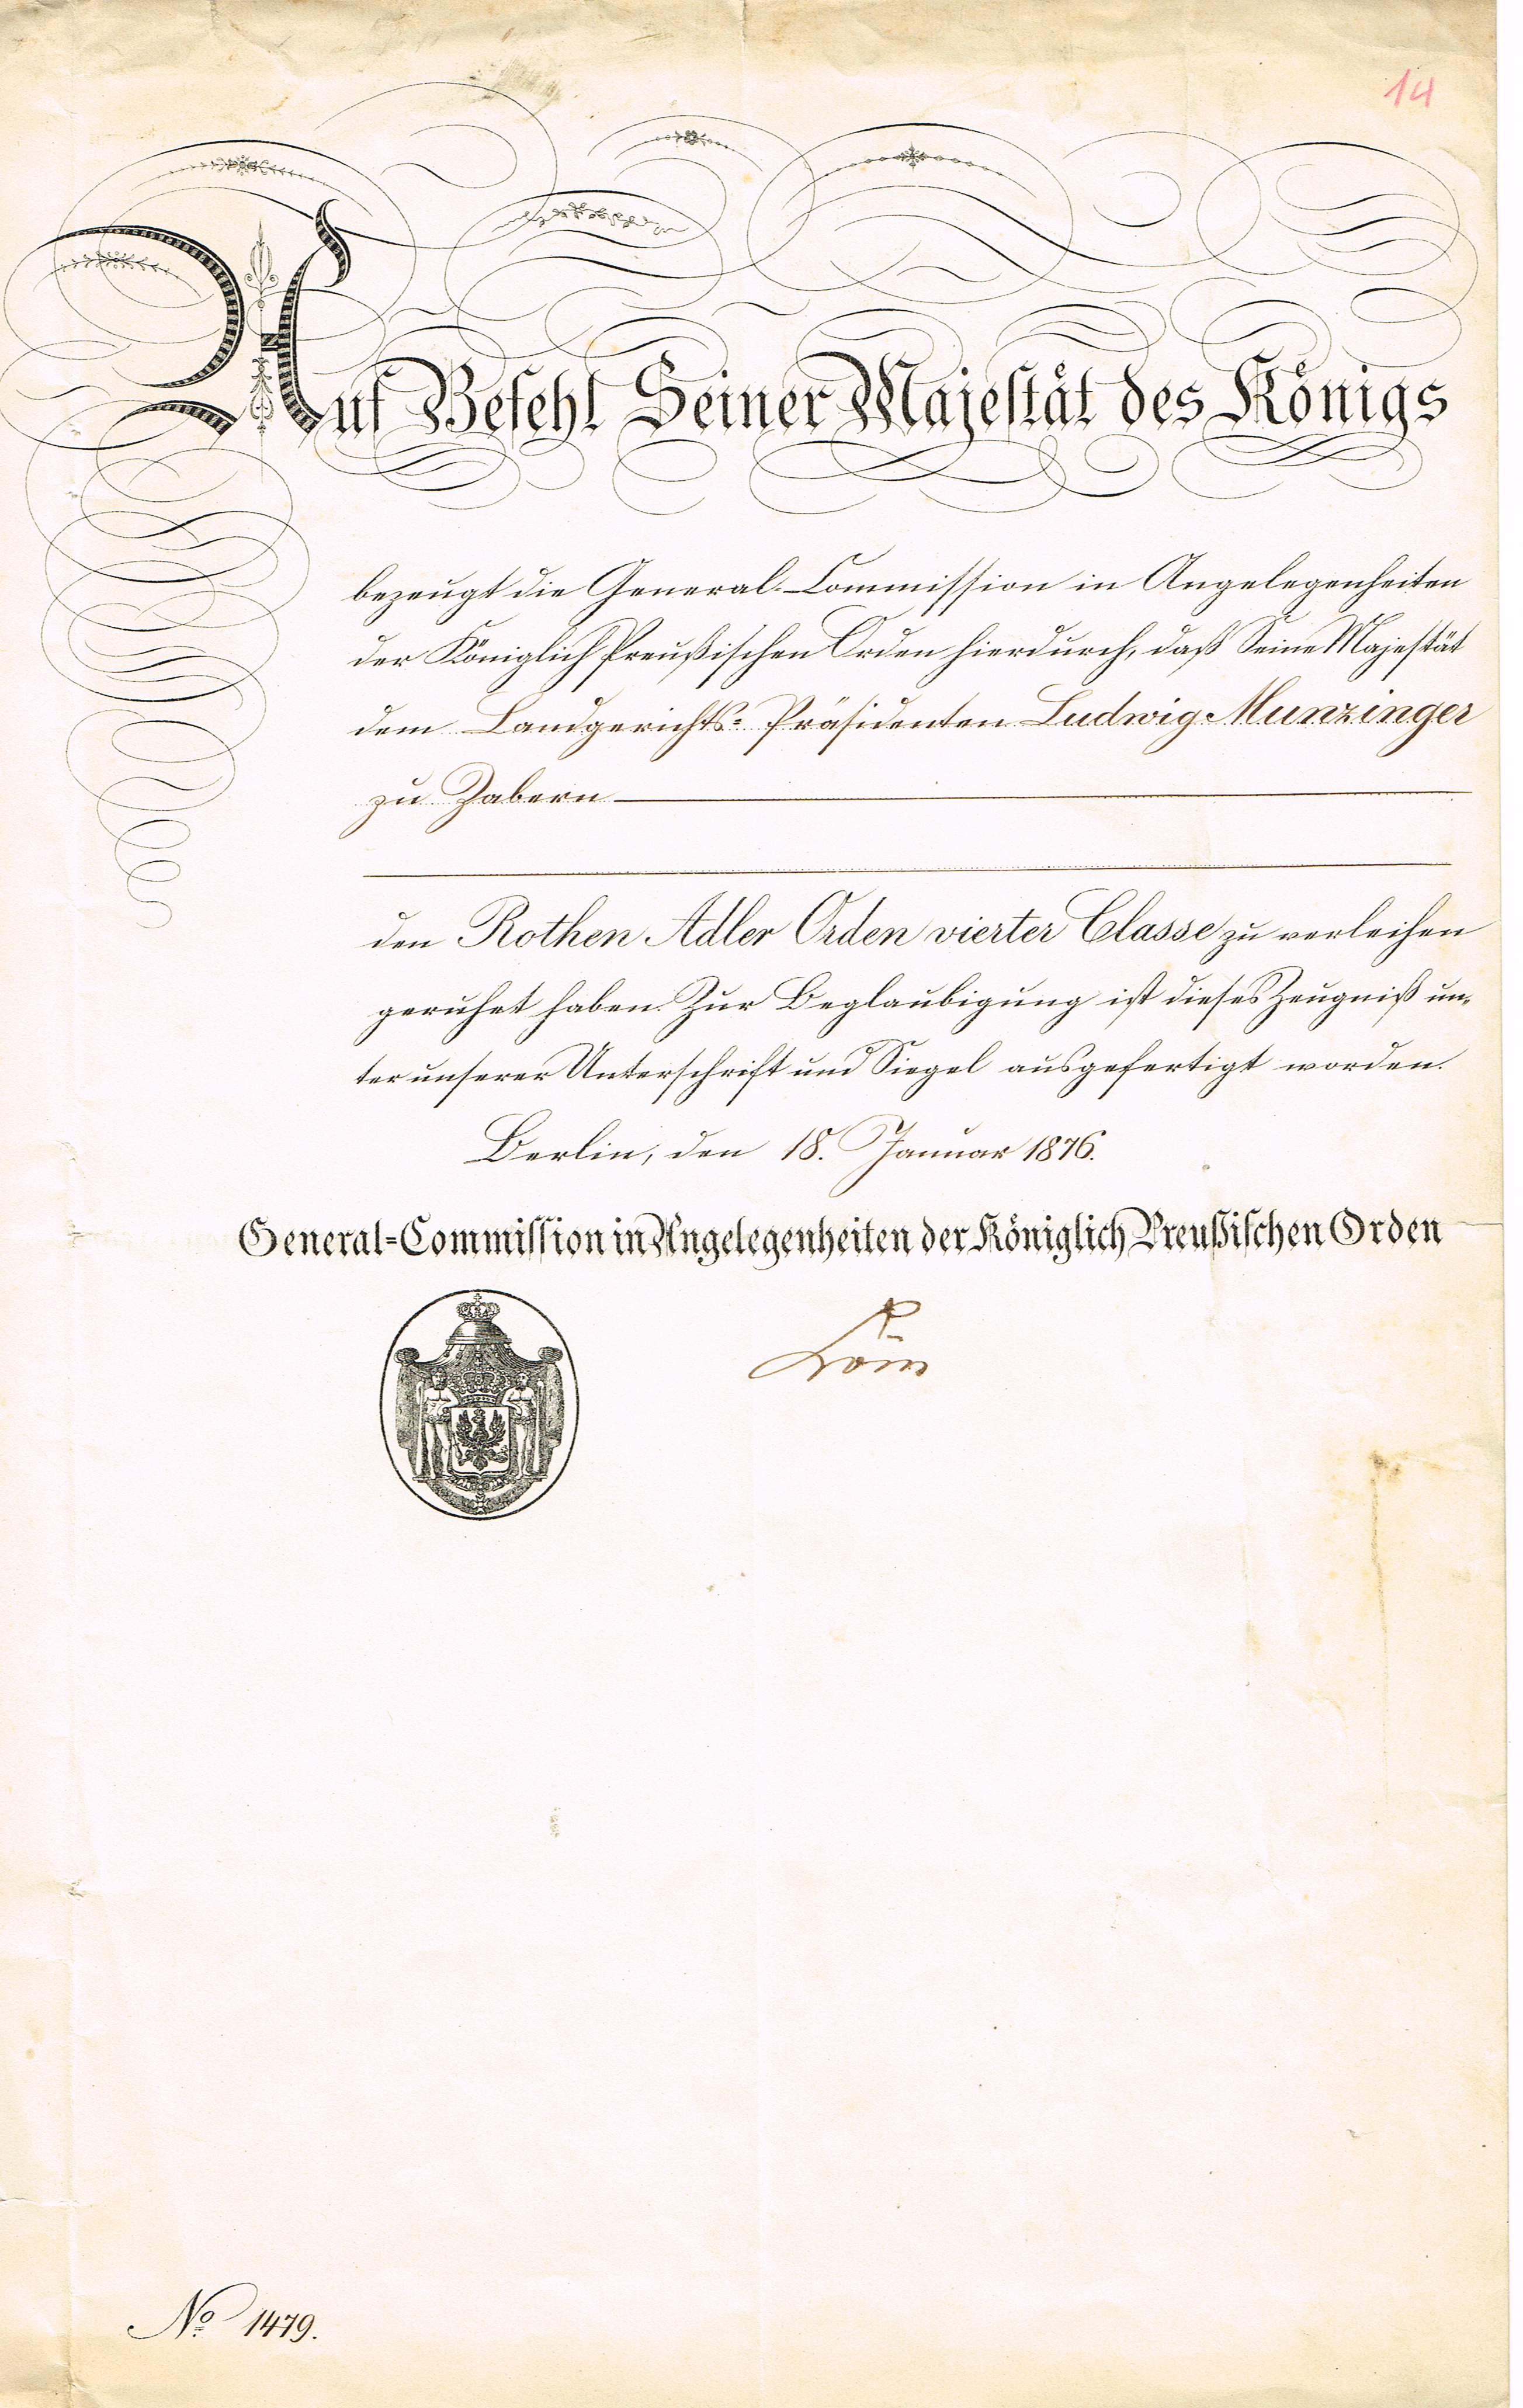 14
Auf Befehl Seiner Majestät des Königs
bezeugt die General-Commission in Angelegenheiten
der Königlich Preußischen Orden hierdurch, daß Seine Majestät
dem Landgerichts-Präsidenten Ludwig Munzinger
zu Zabern
den Rothen Adler Orden vierter Classe zu verleihen
geruhet haben. Zur Beglaubigung ist dieses Zeugniß un-
ter unserer Unterschrift und Siegel ausgefertigt worden.
Berlin, den 18. Januar 1876.
General-Commission in Angelegenheiten der Königlich Preußischen Orden
No 1479.